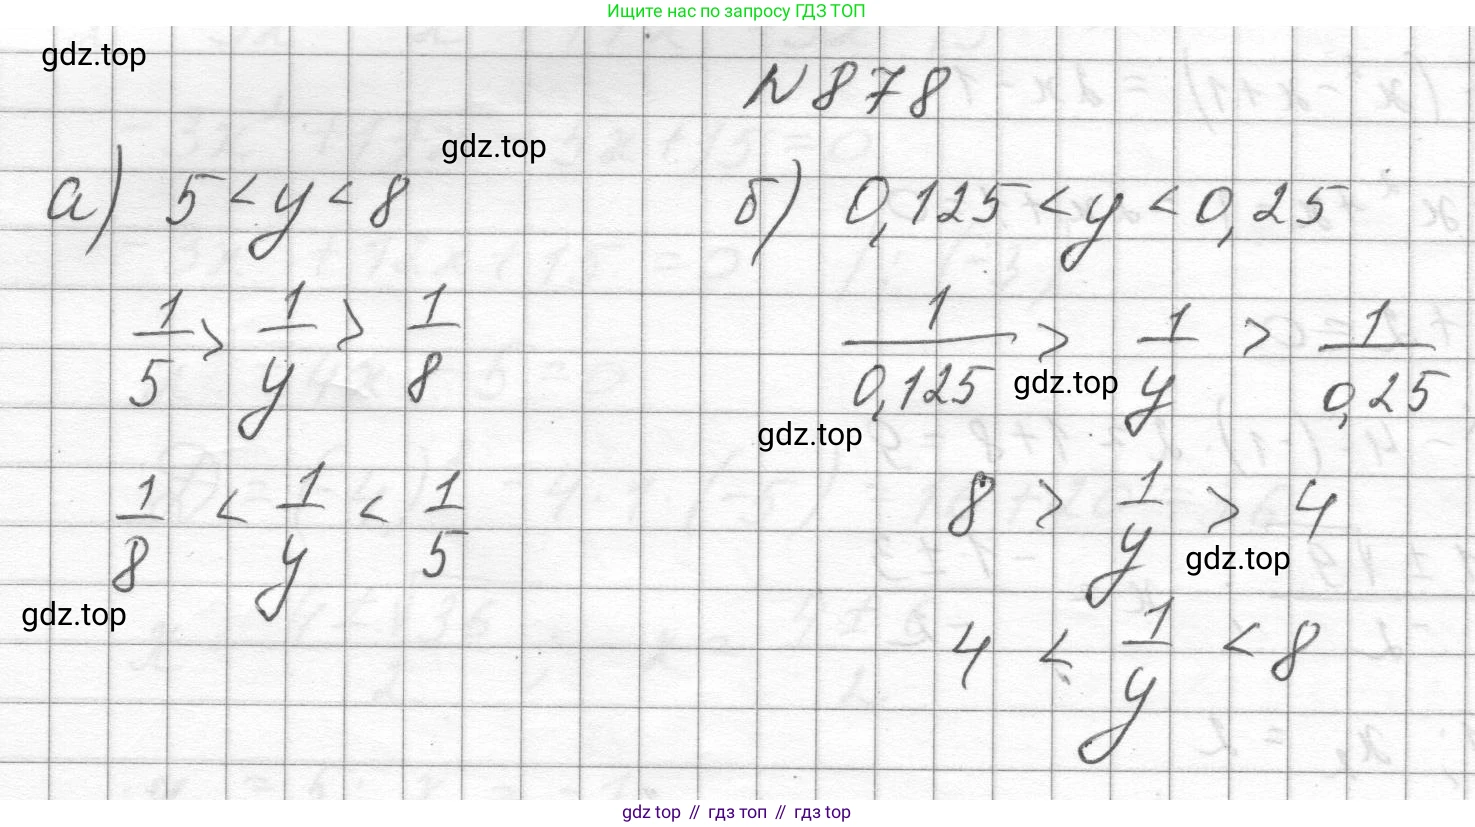 Ищите нас по запросу ГДЗ ТОП
gdz.top
N 878
gdz.top
а) 5 < y < 8
1/5 > 1/y > 1/8
1/8 < 1/y < 1/5
gdz.top
б) 0,125 < y < 0,25
1/0,125 > 1/y > 1/0,25
gdz.top
gdz.top
8 > 1/y > 4
gdz.top
4 < 1/y < 8
gdz.top // гдз топ // гдз top